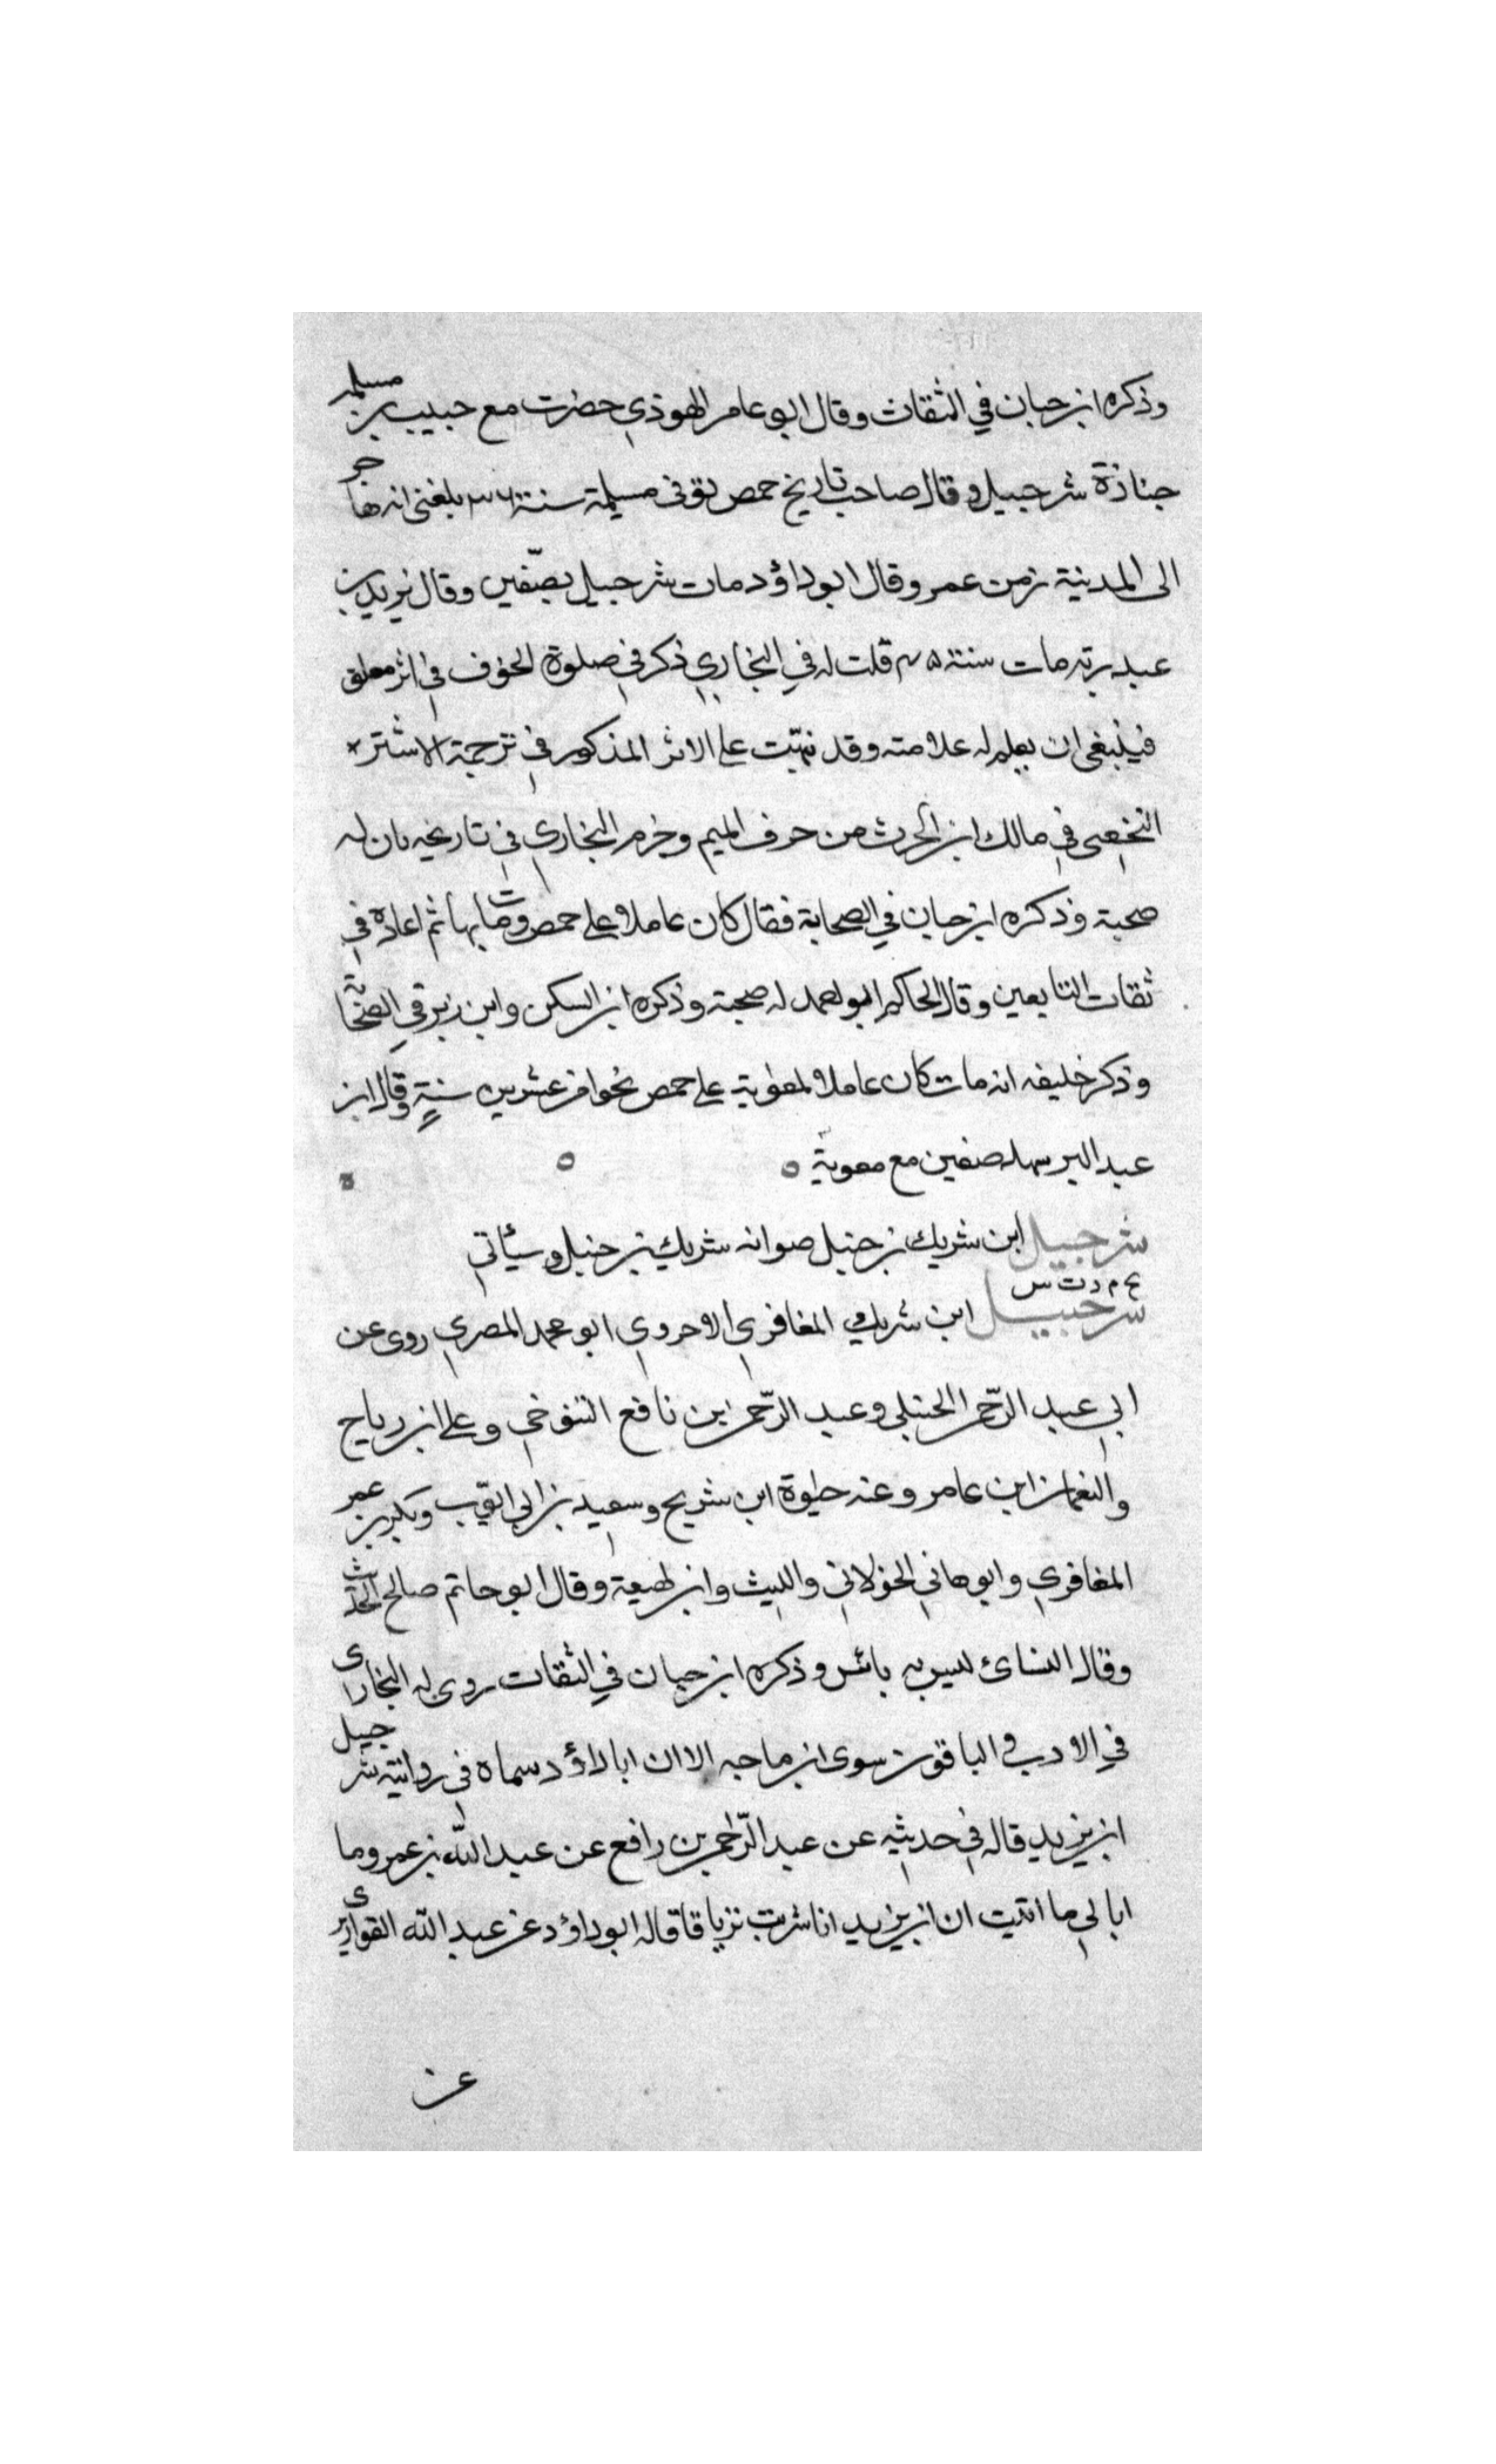 وذكره ابن حبان في الثقات وقال ابو عامر الهوذي حضرت مع حبيب بن مسلمة
جنازة شرحبيل وقال صاحب تاريخ حمص توفى مسلمة سنة ٣٦ بلغنى انه هاجر
الى المدينة زمن عمر وقال ابو داؤد مات شرحبيل بصفّين وقال يزيد بن
عبد ربه مات سنة ٤٥ قلت له في البخاري ذكر في صلوة الخوف في اثر معلق
فينبغى ان يعلم له علامته وقد نبّهت على الاثر المذكور في ترجمة الاشتر
النخعى في مالك ابن الحرث من حرف الميم وجزم البخاري في تاريخه بان له
صحبة وذكره ابن حبان في الصحابة فقال كان عاملا على حمص ومات بها ثم اعاده في
ثقات التابعين وقال الحاكم ابو احمد له صحبة وذكره ابن السكن وابن زبر في الصحابة
وذكر خليفه انه مات كان عاملا لمعوية على حمص نحوا من عشرين سنة وقال ابن
عبد البر شهد صفين مع معوية ٥ ٥
شرحبيل ابن شريك بن حنبل صوابه شريك بن حنبل وسيأتي
بخ م د ت س
شرحبيل ابن شريك المغافري الاحروي ابو محمد المصري روى عن
ابي عبد الرّحمن الحبلي وعبد الرّحمن بن نافع التنوخي وعلى ابن رباح
والنعمان ابن عامر وعنه حيوة ابن شريح وسعيد بن ابي ايّوب وبكر بن عمر
المغافري وابو هاني الخولاني والليث وابن لهيعة وقال ابو حاتم صالح الحديث
وقال النسائ ليس به بائس وذكره ابن حبان في الثقات روى له البخارى
في الادب والباقون سوى ابن ماجه الا ان ابا داؤد سماه في روايته شرحبيل
ابن يزيد قاله في حديثه عن عبد الرّحمن بن رافع عن عبد الله بن عمر وما
ابالي ما اتيت ان ابن يزيد انا شربت تزياقا قاله ابو داؤد عن عبد الله القواريرى
عن